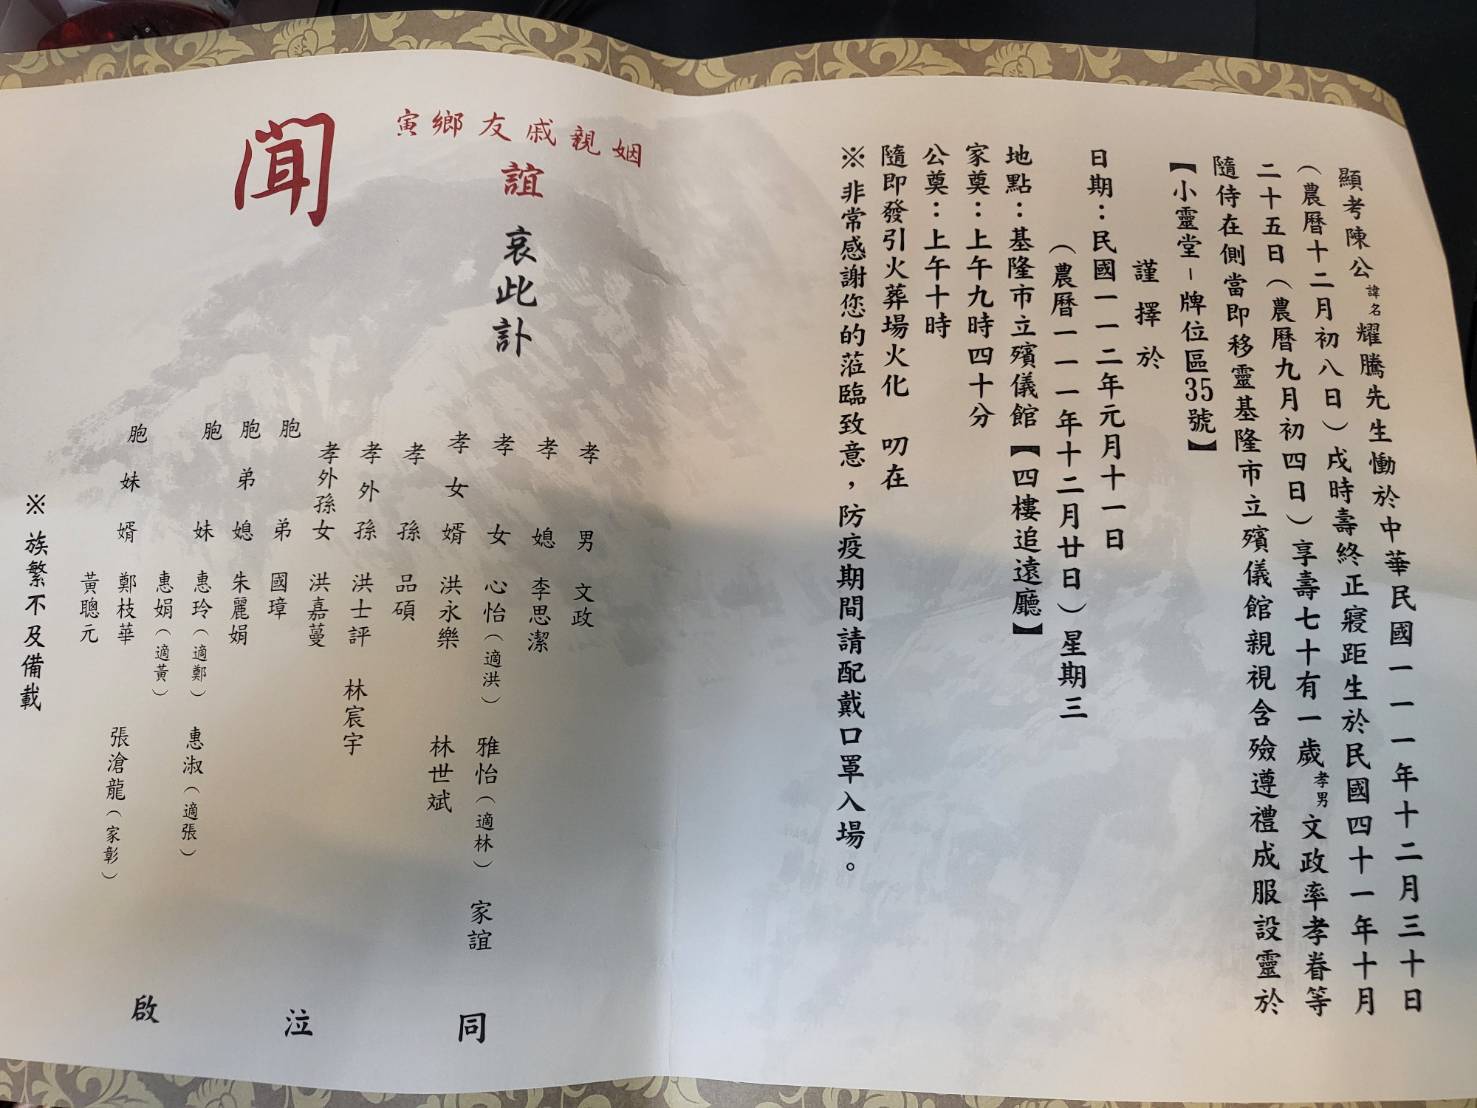 顯考陳公諱名耀騰先生慟於中華民國一一一年十二月三十日
（農曆十二月初八日）戌時壽終正寢距生於民國四十一年十月
二十五日（農曆九月初四日）享壽七十有一歲孝男文政率孝眷等
隨侍在側當即移靈基隆市立殯儀館親視含殮遵禮成服設靈於
【小靈堂－牌位區35號】
謹擇於
日期：民國一一二年元月十一日
（農曆一一一年十二月廿日）星期三
地點：基隆市立殯儀館【四樓追遠廳】
家奠：上午九時四十分
公奠：上午十時
隨即發引火葬場火化 叨在
※非常感謝您的蒞臨致意，防疫期間請配戴口罩入場。
姻親戚友鄉寅
誼 哀此訃
聞
孝男 文政
孝媳 李思潔
孝女 心怡（適洪） 雅怡（適林） 家誼
孝女婿 洪永樂 林世斌
孝孫 品碩
孝外孫 洪士評 林宸宇
孝外孫女 洪嘉蔓
胞弟 國璋
胞弟媳 朱麗娟
胞妹 惠玲（適鄭） 惠淑（適張）
惠娟（適黃）
胞妹婿 鄭枝華 張滄龍（家彰）
黃聰元
同泣啟
※族繁不及備載